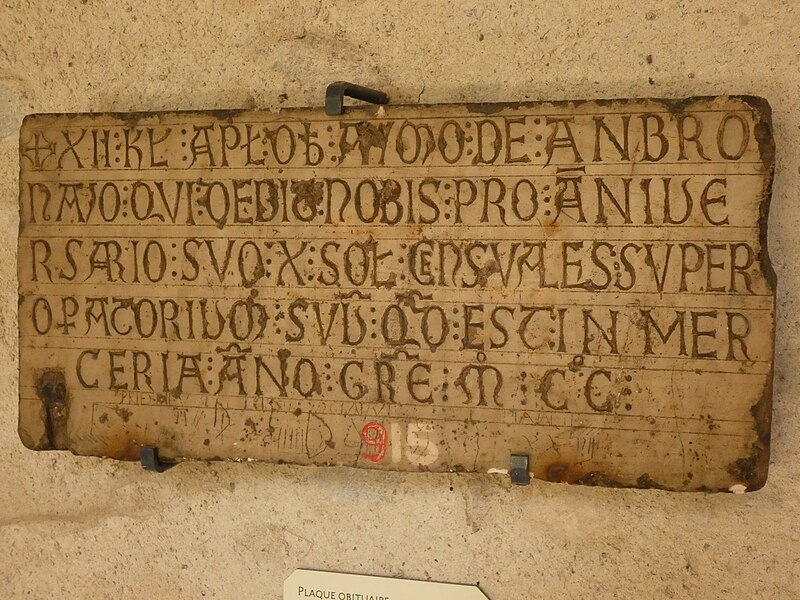 ✠XII:KL̵:APL̵:OB̵:AYMO:DE:ANBRO
NAYO:QVI:DEDIT:NOBIS:PRO:ĀNIVE
RSARIO:SVO:X:SOL̵:CENSVALES:SVPER
OPATORIUM:SVŪ:QD̄:EST:IN MER
CERIA:ĀNO:GRĒ:M̊:C̊C̊:
915
PLAQUE OBITUAIRE